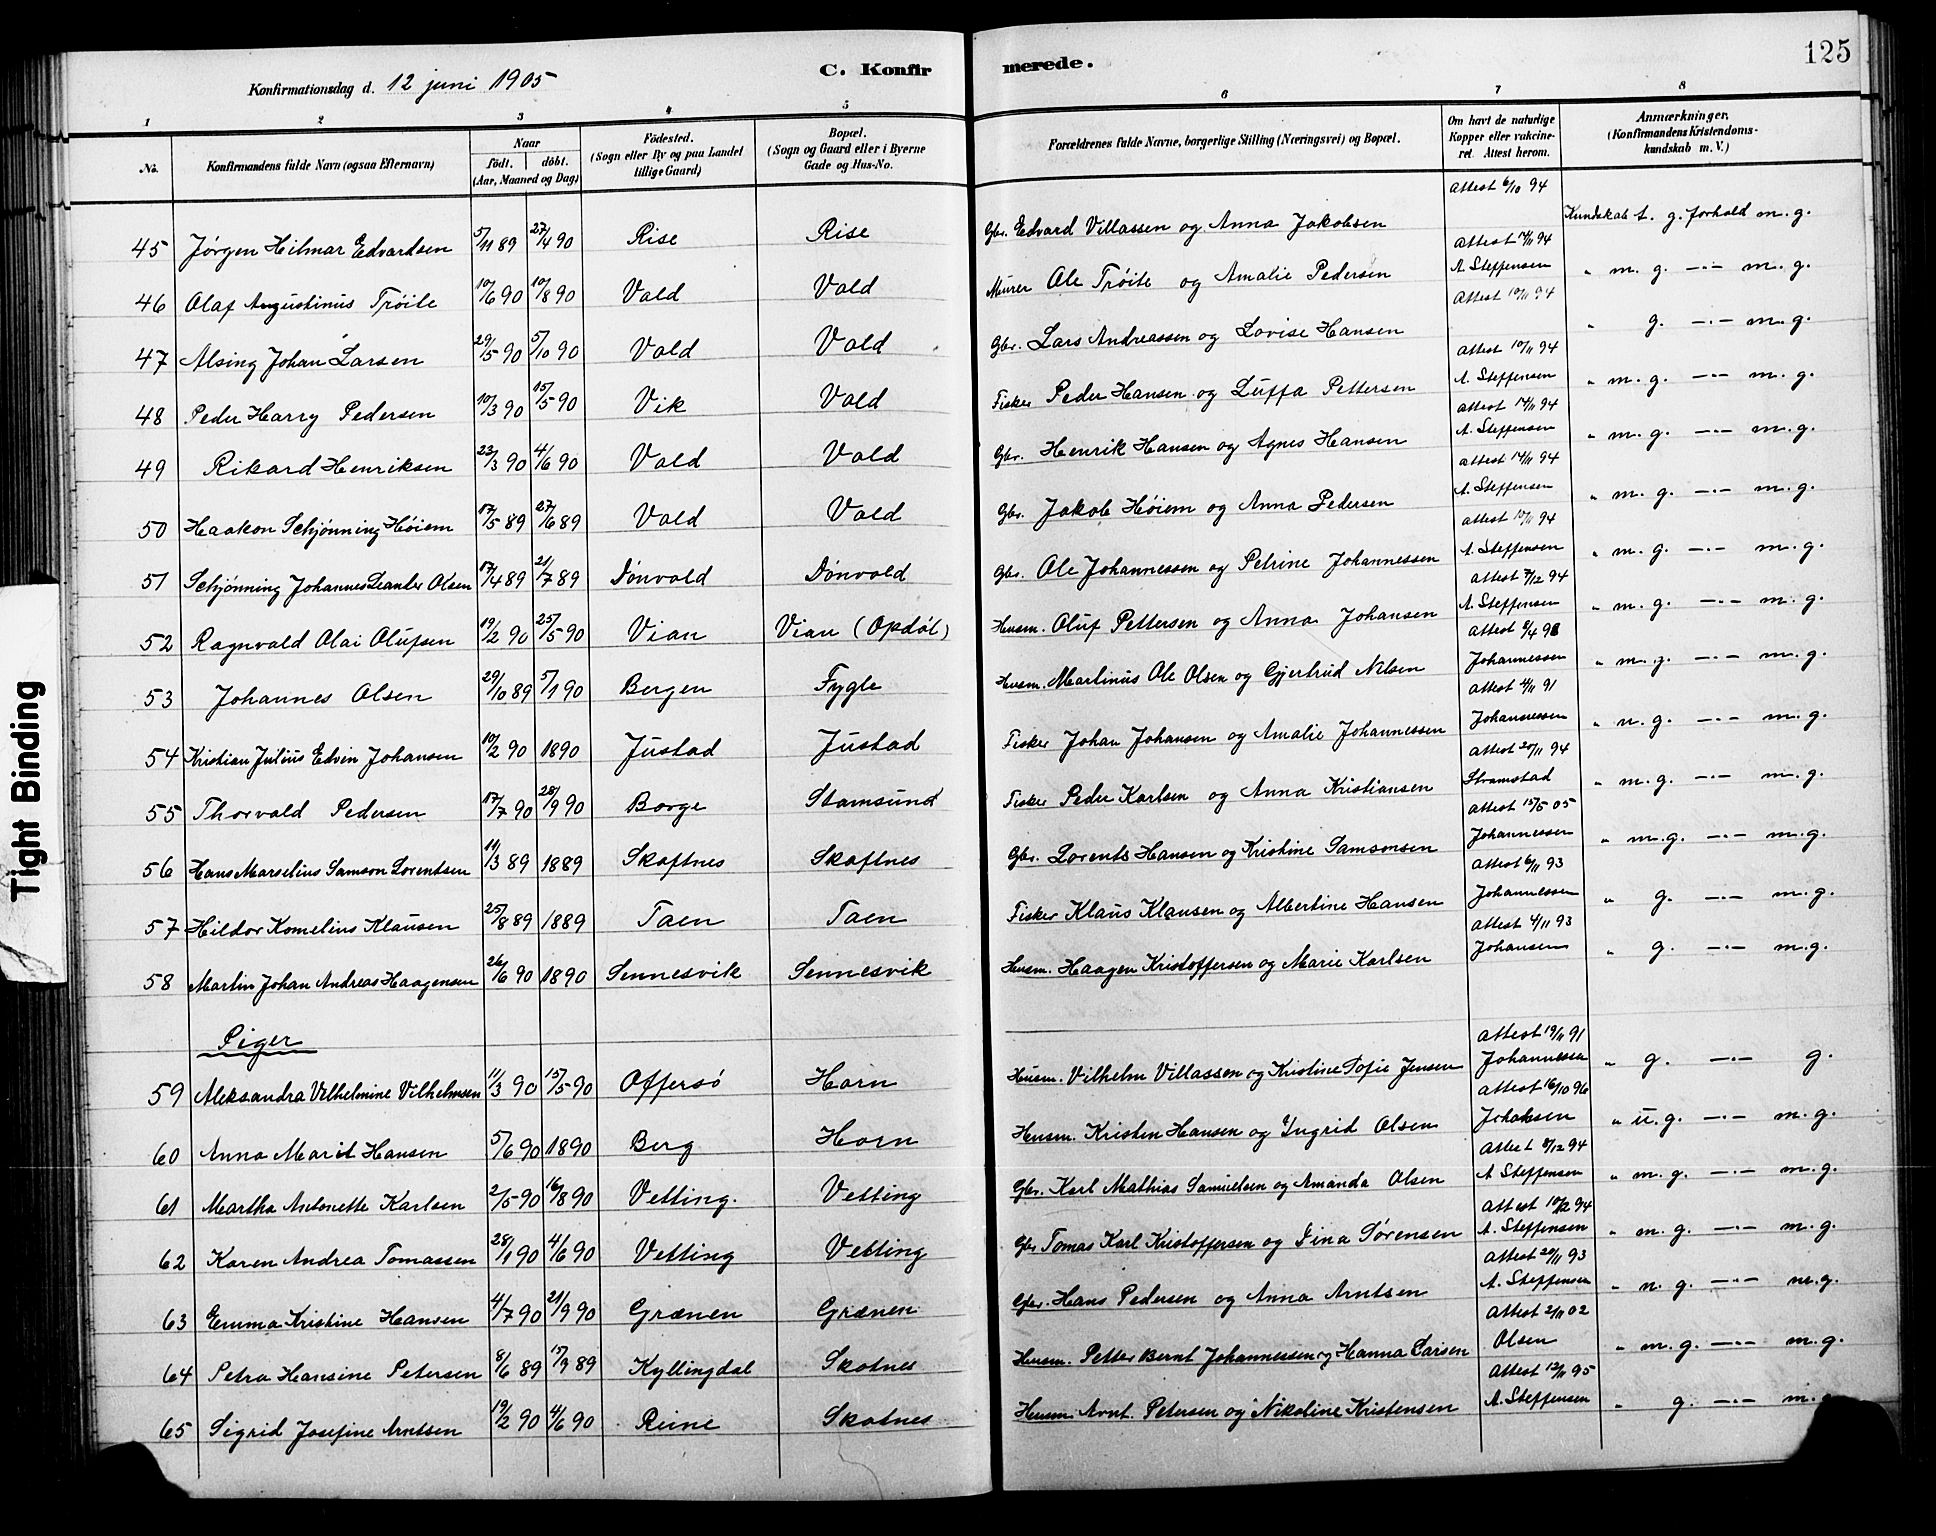 125
Konfirmationsdag d. 12 juni 1905 C. Konfirmerede.
1 2 3 4 5 6 7 8
No. Konfirmandens fulde Navn (ogsaa Efternavn) Naar födt. döbt. (Aar, Maaned og Dag) Födested. (Sogn eller By og paa Landet tillige Gaard) Bopæl. (Sogn og Gaard eller i Byerne Gade og Hus-No. Forældrenes fulde Navne, borgerlige Stilling (Næringsvei) og Bopæl. Om havt de naturlige Kopper eller vakcineret. Attest herom. Anmærkninger, (Konfirmandens Kristendomskundskab m. V.)
45 Jørgen Hilmar Edvardsen 5/11 89 27/4 90 Rise Rise Gbr. Edvard Villassen og Anna Jakobsen Attest 6/10 94 Kundskab t. g. forhold m. g.
46 Olaf Augustinus Trøite 10/6 90 10/8 90 Vold Vold Murer Ole Trøite og Amalie Pedersen Attest 14/11 94 A. Steffensen " m. g. -"- m. g.
47 Alsing Johan Larsen 29/5 90 5/10 90 Vold Vold Gbr. Lars Andreassen og Lovise Hansen Attest 10/11 94 " g. -"- m. g.
48 Peder Harry Pedersen 10/3 90 15/5 90 Vik Vold Fisker Peder Hansen og Luffa Pettersen Attest 10/11 94 A. Steffensen " m. g. -"- m. g.
49 Rikard Henriksen 23/3 90 4/6 90 Vold Vold Gbr. Henrik Hansen og Agnes Hansen Attest 14/11 94 A. Steffensen " m. g. -"- m. g.
50 Haakon Schjønning Høiem 17/5 89 27/6 89 Vold Vold Gbr. Jakob Høiem og Anna Pedersen Attest 14/11 94 A. Steffensen " m. g. -"- m. g.
51 Schjønning Johannes Leander Olsen 17/4 89 21/7 89 Dønvold Dønvold Gbr. Ole Johannessen og Petrine Johannessen Attest 10/11 94 A. Steffensen " m. g. -"- m. g.
52 Ragnvald Olai Olufsen 19/2 90 25/5 90 Vian Vian (Opdøl) Husm. Oluf Pettersen og Anna Johansen Attest 7/12 94 A. Steffensen " m. g. -"- m. g.
53 Johannes Olsen 29/10 89 5/1 90 Bergen Fygle Husm. Martinus Ole Olsen og Gjertrud Nilsen Attest 8/4 Johannessen " m. g. -"- m. g.
54 Kristian Julius Edvin Johansen 10/2 90 1890 Justad Justad Fisker Johan Johansen og Amalie Johannessen Attest 4/11 91 Johannessen " n. g. -"- m. g.
55 Thorvald Pedersen 17/7 90 28/9 90 Borge Stamsund Fisker Peder Karlsen og Anna Kristiansen Attest 20/11 94 Stramstad " m. g. -"- m. g.
56 Hans Marselius Samson Lorentsen 19/3 89 1889 Skaftnes Skaftnes Gbr. Lorents Hansen og Kristine Samsonsen Attest 15/5 05 Johannessen " m. g. -"- m. g.
57 Hildor Kornelius Klausen 25/8 89 1889 Taen Taen Fisker Klaus Klausen og Albertine Hansen Attest 6/11 93 Johannessen " g. -"- m. g.
58 Martin Johan Andreas Haagensen 26/6 90 1890 Sennesvik Sennesvik Husm. Haagen Kristoffersen og Marie Karlsen Attest 4/11 93 Johansen " g. -"- m. g.
Piger
59 Aleksandra Vilhelmine Vilhelmsen 11/3 90 15/5 90 Offersø Horn Husm. Vilhelm Villassen og Kristine Sofie Jensen Attest 19/11 91 Johannessen " g. -"- g.
60 Anna Marit Hansen 5/6 90 1890 Berg Horn Husm. Kristen Hansen og Ingrid Olsen Attest 16/10 96 Johansen " u. g. -"- m. g.
61 Martha Antonette Karlsen 2/5 90 16/8 90 Vetting. Vetting Gbr. Karl Mathias Samuelsen og Amanda Olsen Attest 8/12 94 A Steffensen " m. g. -"- m. g.
62 Karen Andrea Tomassen 28/1 90 4/6 90 Vetting Vetting Gbr Tomas Karl Kristoffersen og Sina Sørensen Attest 10/12 94 A. Steffensen " m. g. -"- m. g.
63 Emma Kristine Hansen 4/7 90 21/9 90 Grænen Grænen Gbr. Hans Pedersen og Anna Arntsen Attest 20/11 93 A. Steffensen " n. g. -"- m. g.
64 Petra Hansine Petersen 8/6 89 15/9 89 Kyllingdal Skotnes Husm. Petter Bernt Johannessen og Hanna Larsen Attest 2/11 02 Olsen " m. g. -"- m. g.
65 Sigrid Josefine Arntsen 19/2 90 4/6 90 Reine Skotnes Husm. Arnt. Petersen og Nikoline Kristensen Attest 12/11 95 A. Steffensen " g. -"- m. g
Tight Binding